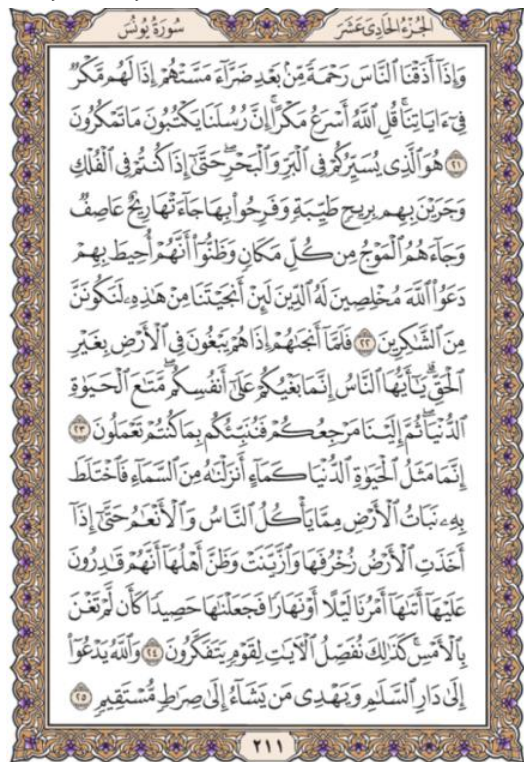 الجزء الحادي عشر
سورة يونس
وَإِذَآ أَذَقْنَا ٱلنَّاسَ رَحْمَةً مِّنۢ بَعْدِ ضَرَّآءَ مَسَّتْهُمْ إِذَا لَهُم مَّكْرٌ
فِىٓ ءَايَاتِنَا ۚ قُلِ ٱللَّهُ أَسْرَعُ مَكْرًا ۚ إِنَّ رُسُلَنَا يَكْتُبُونَ مَا تَمْكُرُونَ
٢١ هُوَ ٱلَّذِى يُسَيِّرُكُمْ فِى ٱلْبَرِّ وَٱلْبَحْرِ ۖ حَتَّىٰٓ إِذَا كُنتُمْ فِى ٱلْفُلْكِ
وَجَرَيْنَ بِهِم بِرِيحٍ طَيِّبَةٍ وَفَرِحُوا۟ بِهَا جَآءَتْهَا رِيحٌ عَاصِفٌ
وَجَآءَهُمُ ٱلْمَوْجُ مِن كُلِّ مَكَانٍ وَظَنُّوٓا۟ أَنَّهُمْ أُحِيطَ بِهِمْ
دَعَوُا۟ ٱللَّهَ مُخْلِصِينَ لَهُ ٱلدِّينَ لَئِنْ أَنجَيْتَنَا مِنْ هَٰذِهِۦ لَنَكُونَنَّ
مِنَ ٱلشَّٰكِرِينَ ٢٢ فَلَمَّآ أَنجَىٰهُمْ إِذَا هُمْ يَبْغُونَ فِى ٱلْأَرْضِ بِغَيْرِ
ٱلْحَقِّ ۗ يَٰٓأَيُّهَا ٱلنَّاسُ إِنَّمَا بَغْيُكُمْ عَلَىٰٓ أَنفُسِكُم ۖ مَّتَٰعَ ٱلْحَيَوٰةِ
ٱلدُّنْيَا ۖ ثُمَّ إِلَيْنَا مَرْجِعُكُمْ فَنُنَبِّئُكُم بِمَا كُنتُمْ تَعْمَلُونَ ٢٣
إِنَّمَا مَثَلُ ٱلْحَيَوٰةِ ٱلدُّنْيَا كَمَآءٍ أَنزَلْنَٰهُ مِنَ ٱلسَّمَآءِ فَٱخْتَلَطَ
بِهِۦ نَبَاتُ ٱلْأَرْضِ مِمَّا يَأْكُلُ ٱلنَّاسُ وَٱلْأَنْعَٰمُ حَتَّىٰٓ إِذَآ
أَخَذَتِ ٱلْأَرْضُ زُخْرُفَهَا وَٱزَّيَّنَتْ وَظَنَّ أَهْلُهَآ أَنَّهُمْ قَٰدِرُونَ
عَلَيْهَآ أَتَىٰهَآ أَمْرُنَا لَيْلًا أَوْ نَهَارًا فَجَعَلْنَٰهَا حَصِيدًا كَأَن لَّمْ تَغْنَ
بِٱلْأَمْسِ ۚ كَذَٰلِكَ نُفَصِّلُ ٱلْءَايَٰتِ لِقَوْمٍ يَتَفَكَّرُونَ ٢٤ وَٱللَّهُ يَدْعُوٓا۟
إِلَىٰ دَارِ ٱلسَّلَٰمِ وَيَهْدِى مَن يَشَآءُ إِلَىٰ صِرَٰطٍ مُّسْتَقِيمٍ ٢٥
٢١١